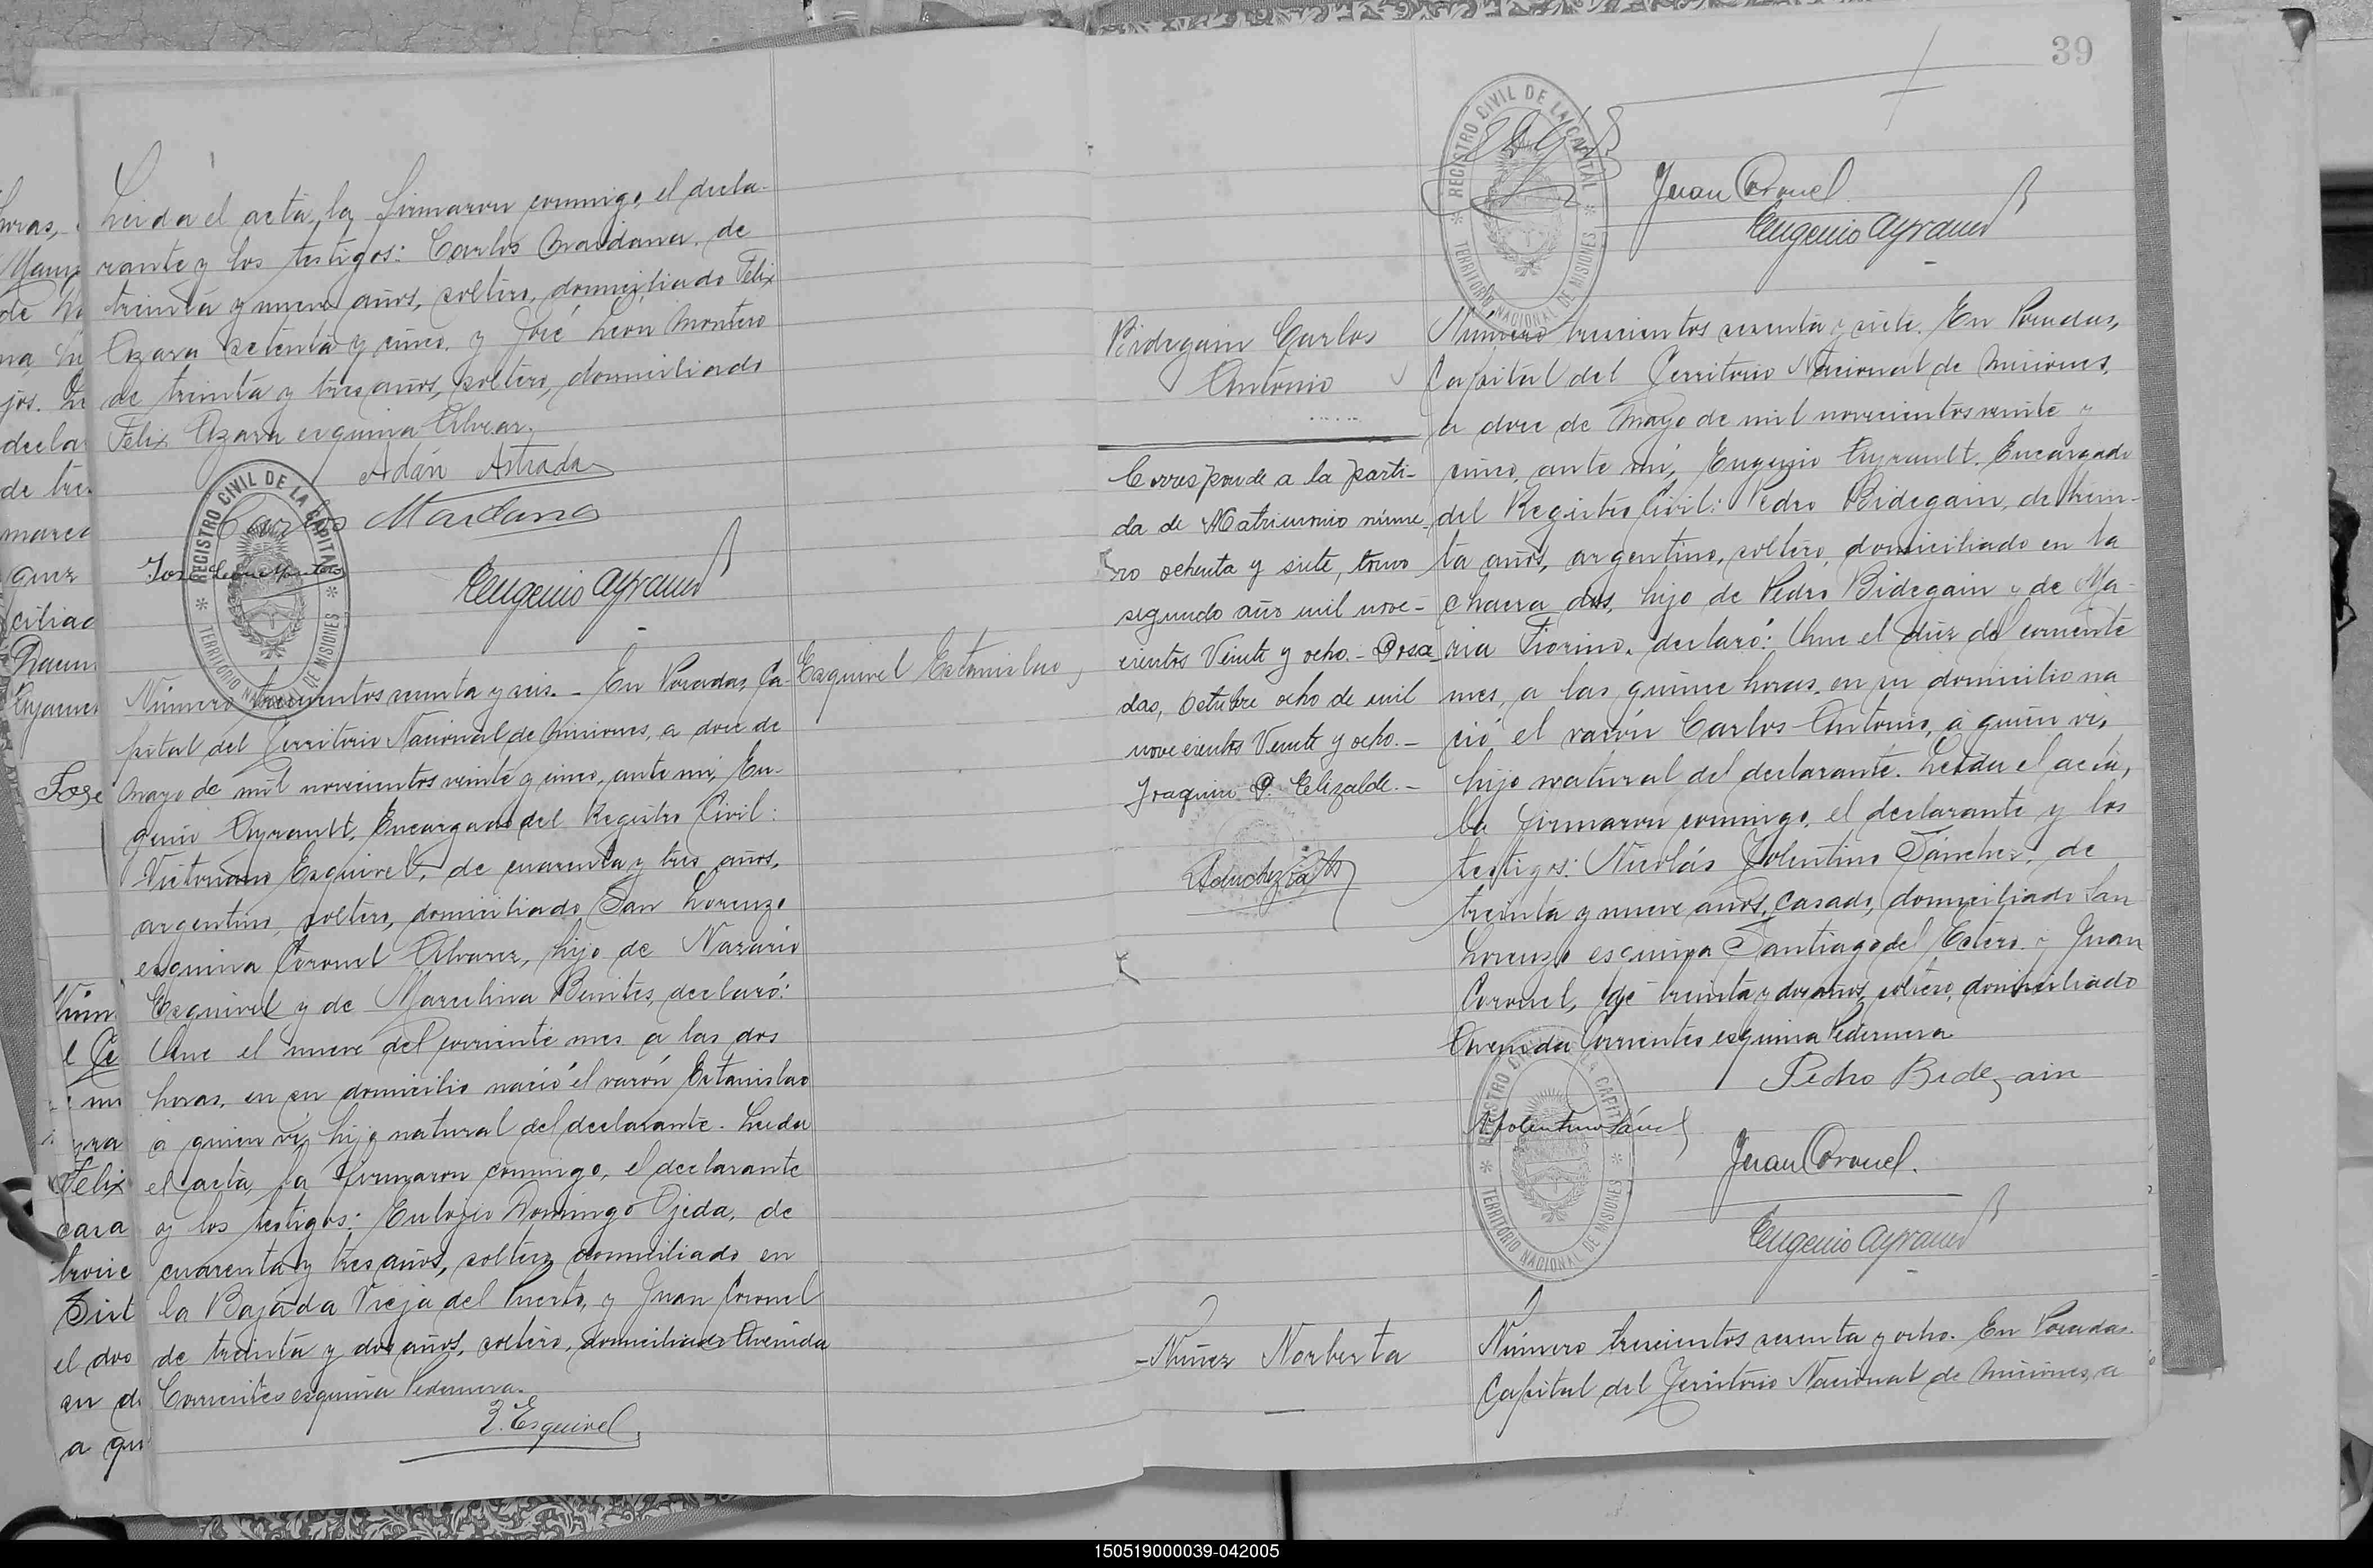 Leida el acta, la firmaron conmigo, el decla-
rante y los testigos: Carlos Maidana, de
treinta y nueve años, soltero, domiciliado Felix
Azara setenta y cinco, y José Leon Montero
de treinta y tres años, soltero, domiciliado
Felix Azara esquina Alvear.
Adán Astrada
Carlos Maidana
José Leon Montero
Eugenio Ayrault
REGISTRO CIVIL DE LA CAPITAL
TERRITORIO NACIONAL DE MISIONES
Esquivel Estanislao
Número trescientos sesenta y seis. - En Posadas, Ca-
pital del Territorio Nacional de Misiones, a doce de
Mayo de mil novecientos veinte y cinco, ante mi, Eu-
genio Ayrault, Encargado del Registro Civil:
Victoriano Esquivel, de cuarenta y tres años,
argentino, soltero, domiciliado San Lorenzo
esquina Coronel Alvarez, hijo de Nazario
Esquivel y de Marcelina Benites, declaró:
Que el nueve del corriente mes a las dos
horas, en su domicilio nació el varón Estanislao
a quien vi, hijo natural del declarante. Leida
el acta, la firmaron conmigo, el declarante
y los testigos: Eulogio Domingo Ojeda, de
cuarenta y tres años, soltero, domiciliado en
la Bajada Vieja del Puerto, y Juan Coronel
de treinta y dos años, soltero, domiciliado Avenida
Corrientes esquina Pedernera.
Esquivel
39
REGISTRO CIVIL DE LA CAPITAL
TERRITORIO NACIONAL DE MISIONES
Juan Coronel
Eugenio Ayrault
Bidegain Carlos
Antonio
Corresponde a la parti-
da de Matrimonio núme-
ro ochenta y siete, tomo
segundo año mil nove-
cientos Veinte y ocho. - Posa-
das, Octubre ocho de mil
novecientos Veinte y ocho. -
Joaquin P. Elizalde. -
Número trescientos sesenta y siete. En Posadas,
Capital del Territorio Nacional de Misiones,
a doce de Mayo de mil novecientos veinte y
cinco, ante mí, Eugenio Ayrault, Encargado
del Registro Civil: Pedro Bidegain, de trein-
ta años, argentino, soltero, domiciliado en la
chacra dos, hijo de Pedro Bidegain y de Ma-
ria Fiorino, declaró: Que el diez del corriente
mes, a las quince horas, en su domicilio na
ció el varón Carlos Antonio, a quien vi,
hijo natural del declarante. Leida el acta,
la firmaron conmigo, el declarante y los
testigos: Nicolás Tolentino Sanchez, de
treinta y nueve años, casado, domiciliado San
Lorenzo esquina Santiago del Estero y Juan
Coronel, de treinta y dos años, soltero, domiciliado
Avenida Corrientes esquina Pedernera
Pedro Bidegain
Juan Coronel.
Eugenio Ayrault
REGISTRO CIVIL DE LA CAPITAL
TERRITORIO NACIONAL DE MISIONES
Nuñez Norberta
Número trescientos sesenta y ocho. En Posadas.
Capital del Territorio Nacional de Misiones, a
150519000039-042005